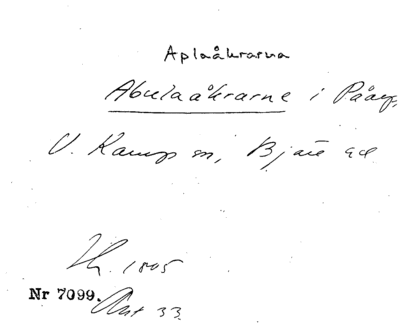 Aplaåkrarna
Abulaåkrarne i Påarp,
V. Karup sn, Bjäre hd
1805
Nr 7099.
Akt 33.